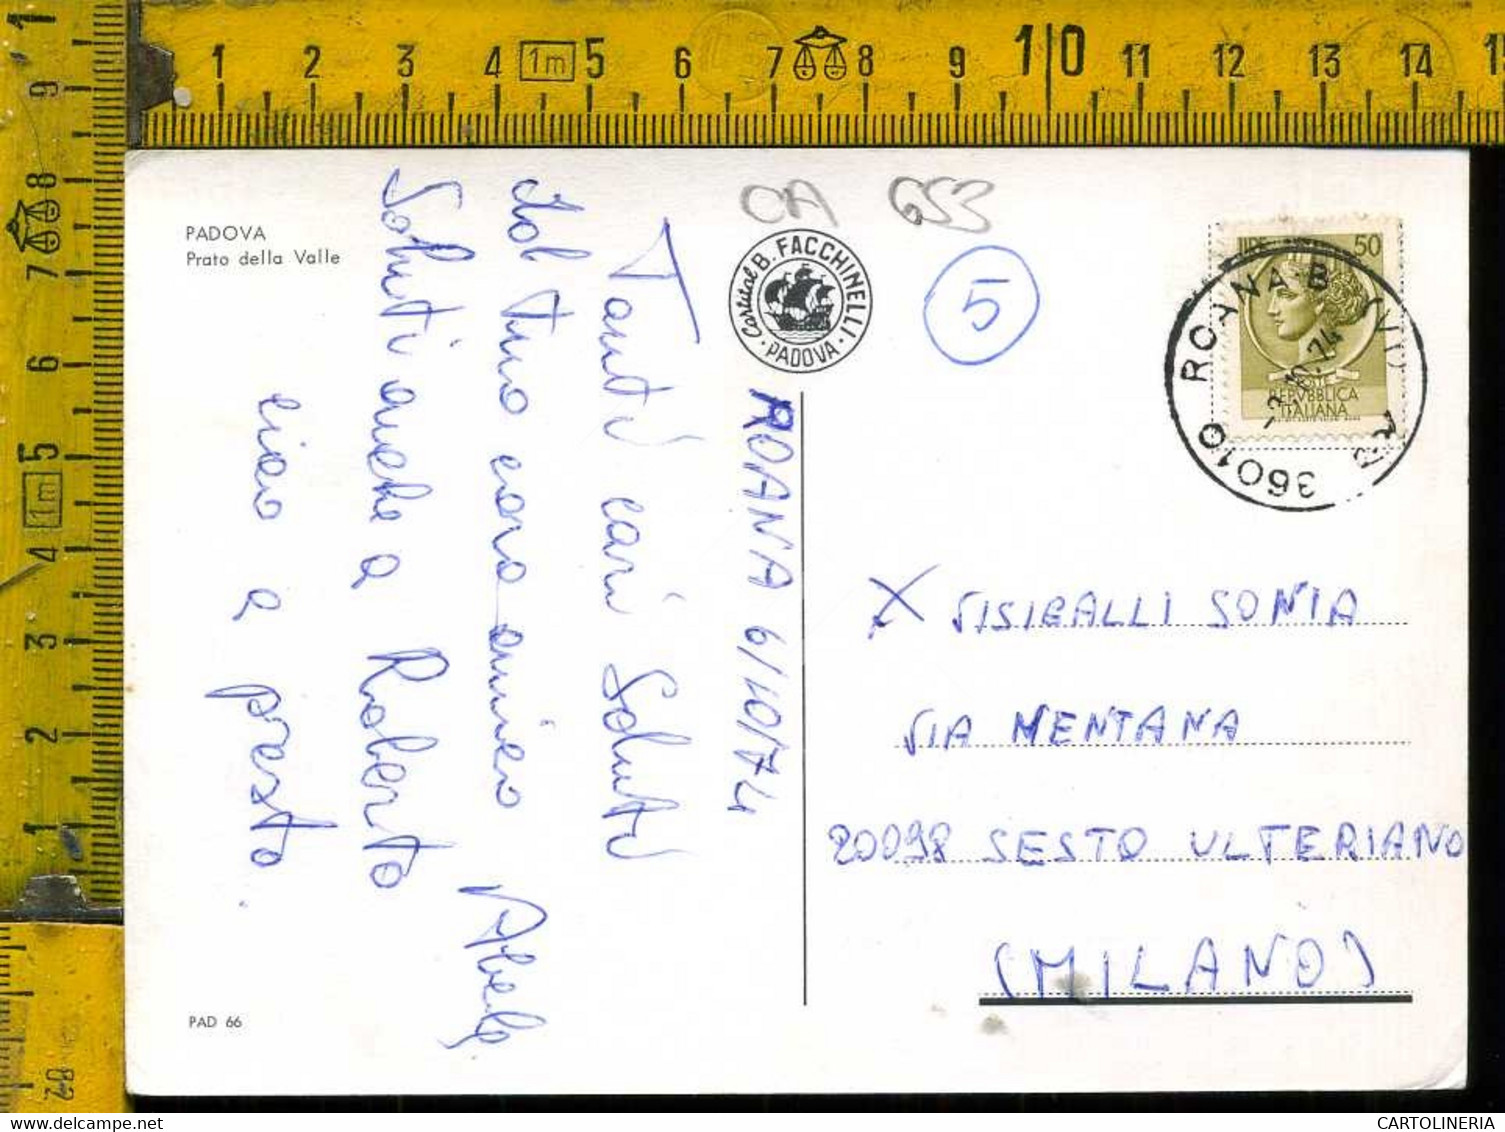 1 2 3 4 1m 5 6 7 8 9 10 11 12 13 14
1 9 8 7 6 5 1m 4 3 2 1
PADOVA
Prato della Valle
PAD 66
OA 653
Cartital B. FACCHINELLI
· PADOVA ·
5
LIRE 50
POSTE
REPVBBLICA
ITALIANA
36010 ROANA B
10.74
ROANA 6/10/74
Tanti cari Saluti
dal tuo caro amico Abele
Saluti anche a Roberto
ciao a presto.
X SISIGALLI SONIA
VIA MENTANA
20098 SESTO ULTERIANO
(MILANO)
CARTOLINERIA